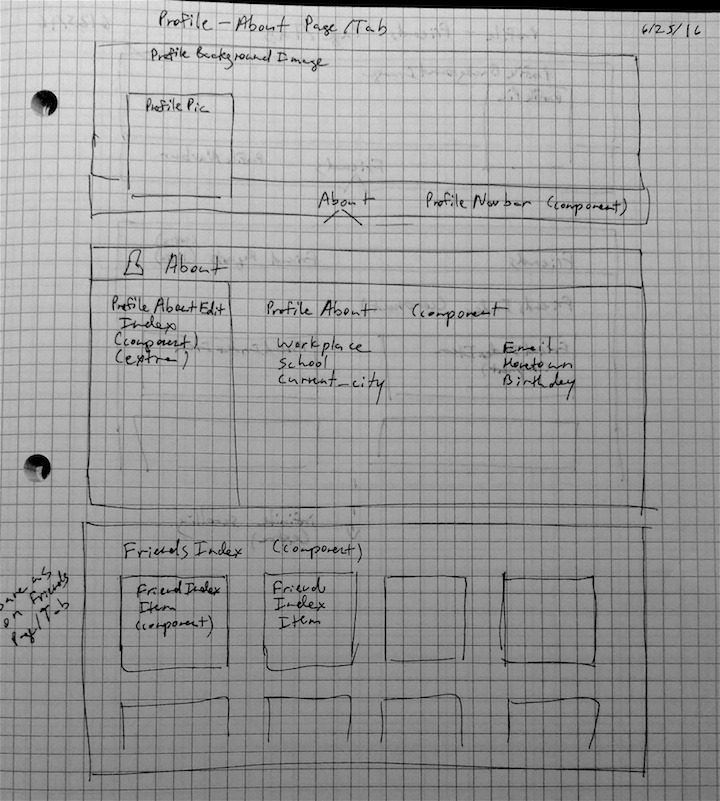 Profile - About Page/Tab
6/25/16
Profile Background Image
Profile Pic
About
Profile Navbar (component)
About
Profile About Edit
Index
(component)
(extra)
Profile About (component
Workplace
School
Current_city
Email
Hometown
Birthday
Friends Index (component)
Same as
on Friends
Page/Tab
Friend Index
Item
(component)
Friend
Index
Item